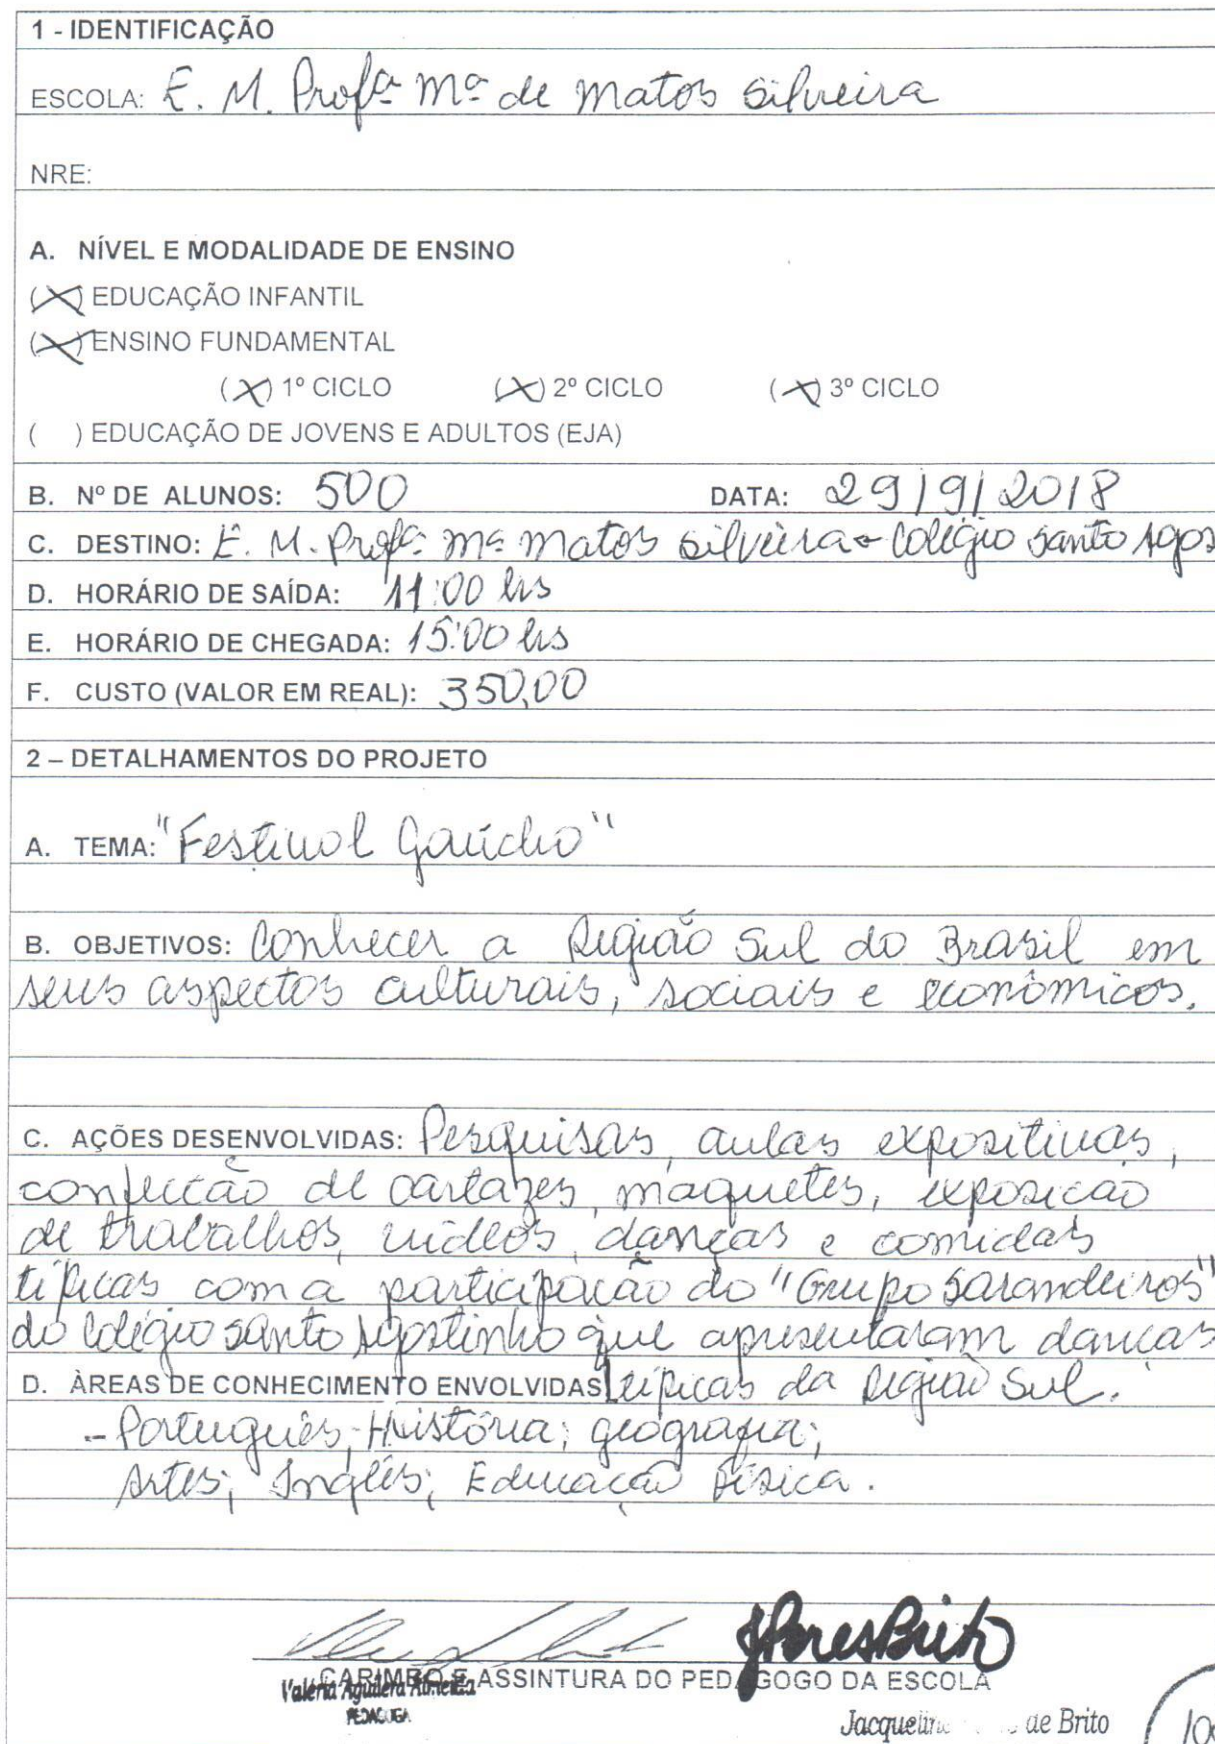 1 - IDENTIFICAÇÃO
ESCOLA: E. M. Profª Mª de Matos Silveira
NRE:
A. NÍVEL E MODALIDADE DE ENSINO
(X) EDUCAÇÃO INFANTIL
(X) ENSINO FUNDAMENTAL
(X) 1º CICLO (X) 2º CICLO (X) 3º CICLO
( ) EDUCAÇÃO DE JOVENS E ADULTOS (EJA)
B. Nº DE ALUNOS: 500 DATA: 29/9/2018
C. DESTINO: E. M. Profª Mª Matos Silveira - Colégio Santo Agos
D. HORÁRIO DE SAÍDA: 11:00 hs
E. HORÁRIO DE CHEGADA: 15:00 hs
F. CUSTO (VALOR EM REAL): 350,00
2 – DETALHAMENTOS DO PROJETO
A. TEMA: "Festival Gaúcho"
B. OBJETIVOS: Conhecer a Região Sul do Brasil em
seus aspectos culturais, sociais e econômicos.
C. AÇÕES DESENVOLVIDAS: Pesquisas, aulas expositivas,
confecção de cartazes, maquetes, exposição
de trabalhos, vídeos, danças e comidas
típicas com a participação do "Grupo Sarandeiros"
do Colégio Santo Agostinho que apresentaram danças
D. ÀREAS DE CONHECIMENTO ENVOLVIDAS típicas da Região Sul.
- Português; História; geografia;
Artes; Inglês; Educação Física.
CARIMBO E ASSINTURA DO PEDAGOGO DA ESCOLA
Valéria Aguilera Almeida
PEDAGOGA
Jacqueline de Brito